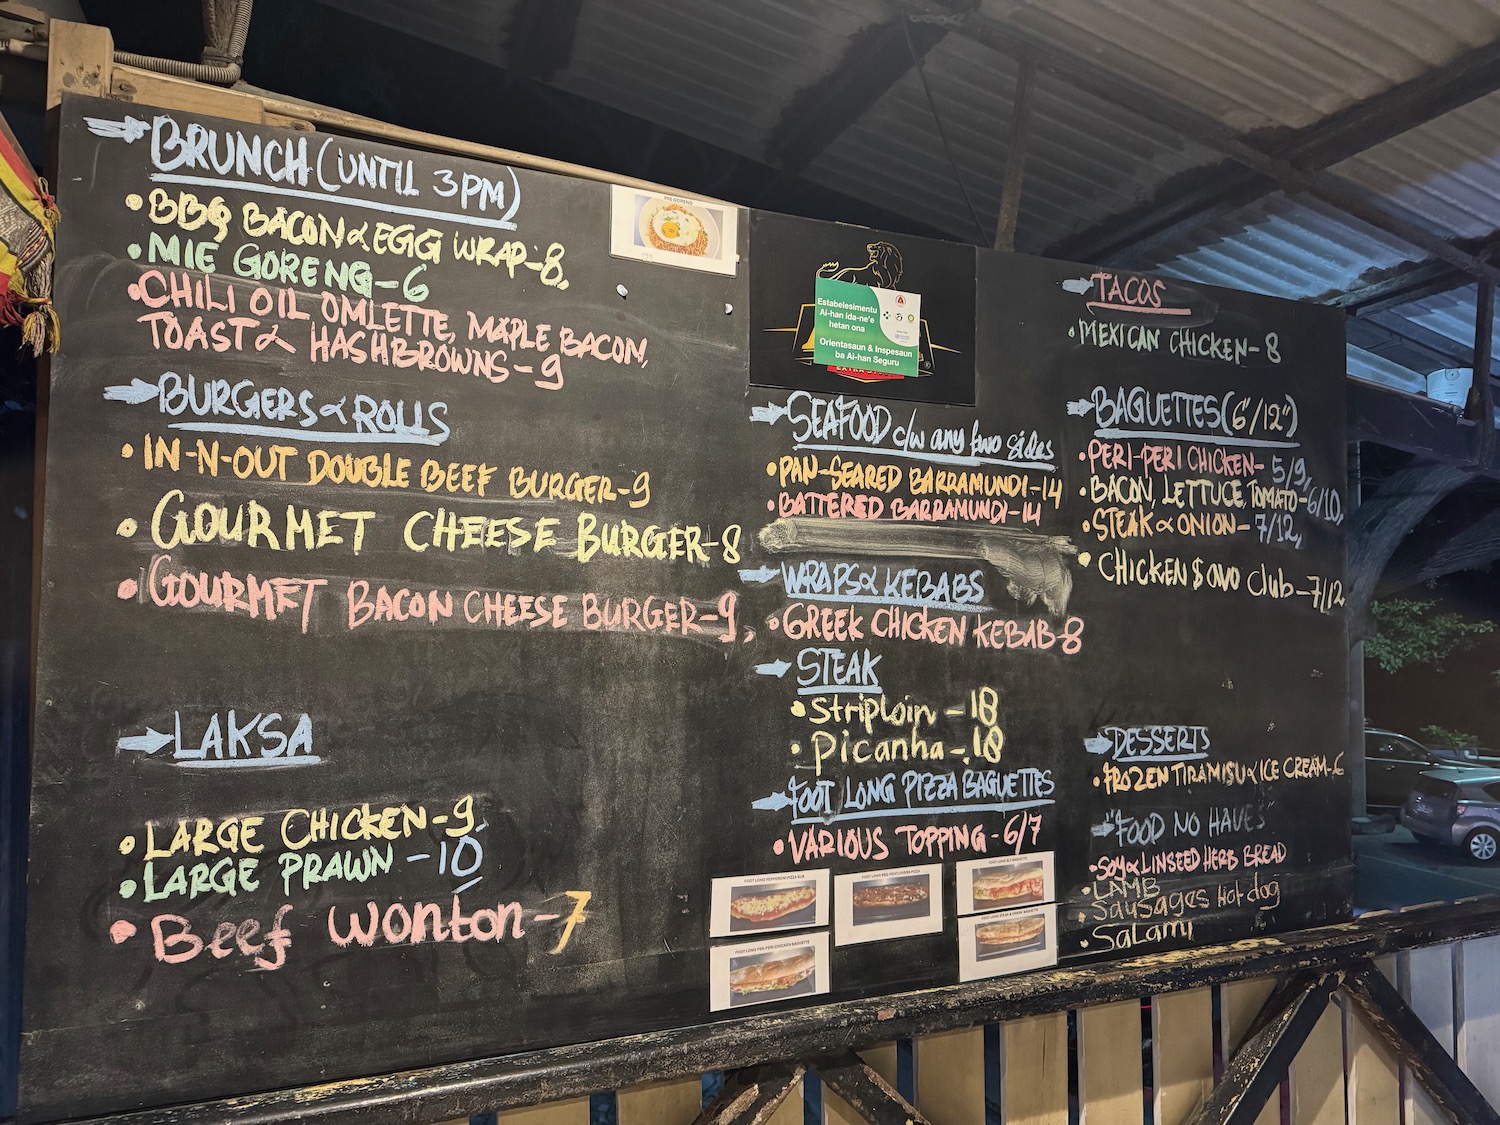 BRUNCH (UNTIL 3PM)
• BBQ BACON & EGG WRAP - 8,
• MIE GORENG - 6
• CHILI OIL OMLETTE, MAPLE BACON,
TOAST & HASHBROWNS - 9
BURGERS & ROLLS
• IN-N-OUT DOUBLE BEEF BURGER - 9
• GOURMET CHEESE BURGER - 8
• GOURMET BACON CHEESE BURGER - 9,
LAKSA
• LARGE CHICKEN - 9
• LARGE PRAWN - 10
• Beef wonton - 7
MIE GORENG
Estabelesimentu
Ai-han ida-ne'e
hetan ona
Orientasaun & Inspesaun
ba Ai-han Seguru
SEAFOOD c/w any two sides
• PAN-SEARED BARRAMUNDI - 14
• BATTERED BARRAMUNDI - 14
WRAPS & KEBABS
• GREEK CHICKEN KEBAB - 8
STEAK
• Striploin - 18
• Picanha - 18
FOOT LONG PIZZA BAGUETTES
• VARIOUS TOPPING - 6/7
FOOT LONG PEPPERONI PIZZA SUB
FOOT LONG BBQ MEATLOVERS PIZZA
FOOT LONG BLT BAGUETTE
FOOT LONG STEAK & ONION BAGUETTE
FOOT LONG PERI-PERI CHICKEN BAGUETTE
TACOS
• MEXICAN CHICKEN - 8
BAGUETTES (6"/12")
• PERI-PERI CHICKEN - 5/9,
• BACON, LETTUCE, TOMATO - 6/10,
• STEAK & ONION - 7/12,
• CHICKEN $ avo Club - 7/12
DESSERTS
• FROZEN TIRAMISU & ICE CREAM - 6
"FOOD NO HAVES"
• SOY & LINSEED HERB BREAD
• LAMB
• Sausages Hot dog
• Salami